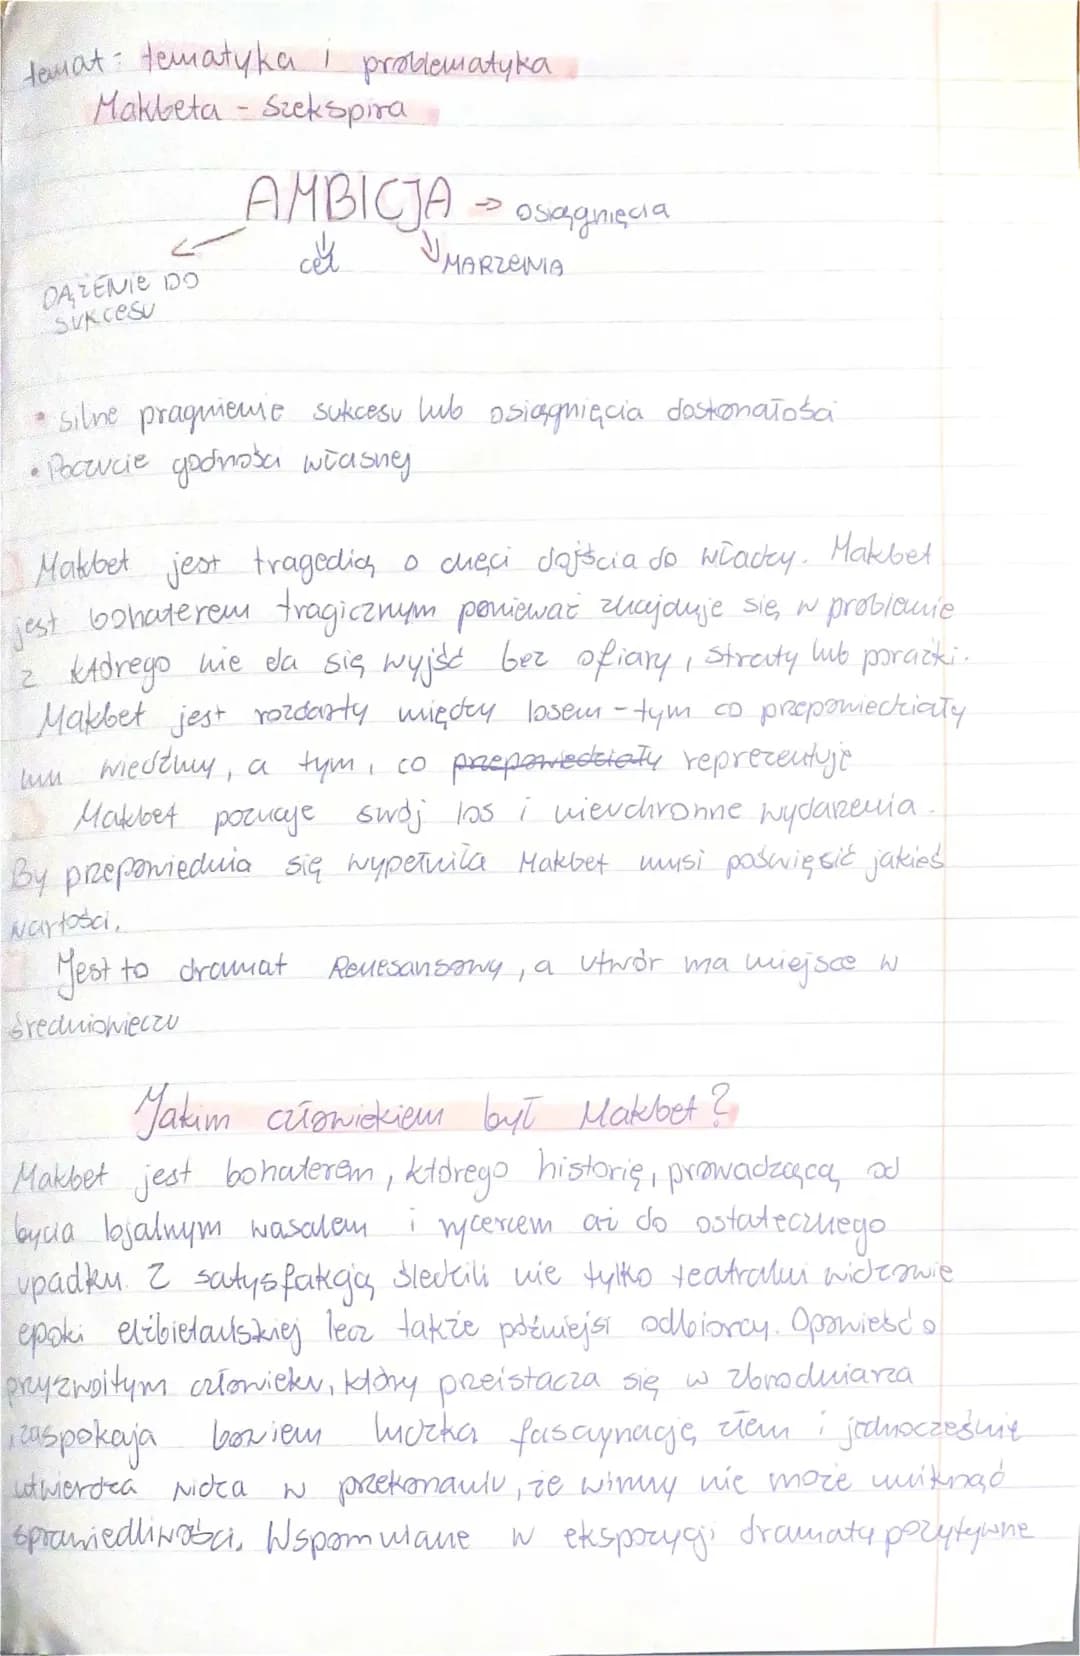 temat: tematyka i problematyka
Makbeta - Szekspira
AMBICJA → osiągnięcia
cel
MARZENIA
DĄŻENIE DO
SUKCESU
• silne pragnienie sukcesu lub osiągnięcia doskonałości
• Poczucie godności własnej
Makbet jest tragedią o chęci dojścia do władzy. Makbet
jest bohaterem tragicznym ponieważ znajduje się w problemie
z którego nie da się wyjść bez ofiary, straty lub porażki.
Makbet jest rozdarty między losem - tym co przepowiedziały
mu wiedźmy, a tym, co przepowiedziały reprezentuje
Makbet poznaje swój los i nieuchronne wydarzenia.
By przepowiednia się wypełniła Makbet musi poświęsić jakieś
wartości.
Jest to dramat Renesansowy, a utwór ma miejsce w
średniowieczu
Jakim człowiekiem był Makbet?
Makbet jest bohaterem, którego historię, prowadzącą od
bycia lojalnym wasalem i rycerzem aż do ostatecznego
upadku. Z satysfakcją śledzili nie tylko teatralni widzowie
epoki elżbietańskiej lecz także późniejsi odbiorcy. Opowieść o
przyzwoitym człowieku, który przeistacza się w zbrodniarza
zaspokaja bowiem ludzką fascynację złem i jednocześnie
utwierdza widza w przekonaniu, że winny nie może uniknąć
sprawiedliwości. Wspomniane w ekspozycji dramatu pozytywne